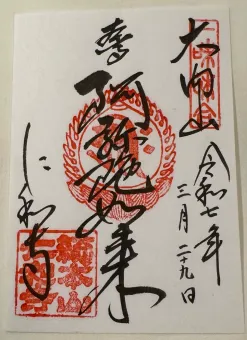 大内山
令和七年
三月二十九日
阿弥陀如来
仁和寺
総本山
仁和寺